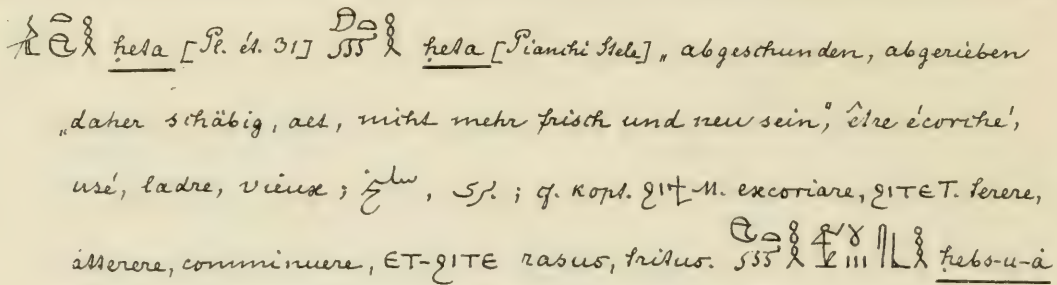 ḥeta [Pl. ét. 31] ḥeta [Pianchi Stele] „abgeschunden, abgerieben
„daher schäbig, alt, nicht mehr frisch und neu sein“, être écorché,
usé, ladre, vieux; ; cf. kopt. ϩⲓϯ M. excoriare, ϩⲓⲧⲉ T. terere,
atterere, comminuere, ⲉⲧ-ϩⲓⲧⲉ rasus, tritus. ḥebs-u-à